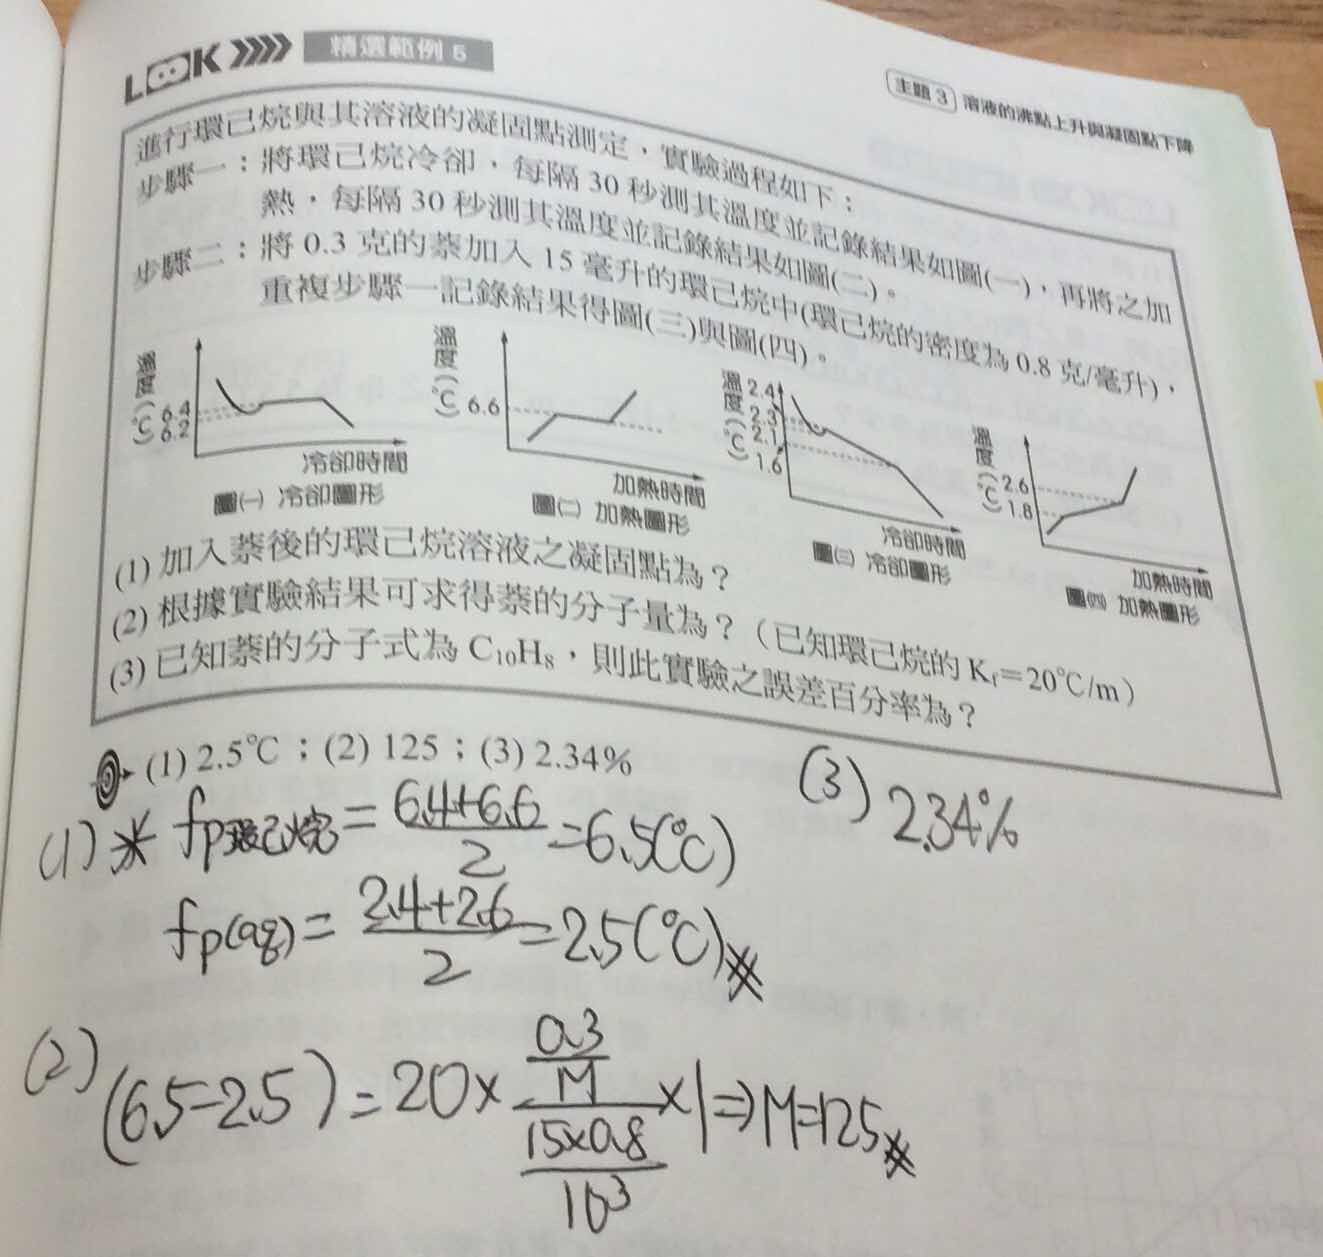 LOOK 精選範例 5
主題 3 溶液的沸點上升與凝固點下降
進行環己烷與其溶液的凝固點測定，實驗過程如下：
步驟一：將環己烷冷卻，每隔 30 秒測其溫度並記錄結果如圖(一)，再將之加
熱，每隔 30 秒測其溫度並記錄結果如圖(二)。
步驟二：將 0.3 克的萘加入 15 毫升的環己烷中(環己烷的密度為 0.8 克/毫升)，
重複步驟一記錄結果得圖(三)與圖(四)。
溫度(℃)
6.4
6.2
冷卻時間
圖(一) 冷卻圖形
溫度(℃)
6.6
加熱時間
圖(二) 加熱圖形
溫度(℃)
2.4
2.3
2.1
1.6
冷卻時間
圖(三) 冷卻圖形
溫度(℃)
2.6
1.8
加熱時間
圖(四) 加熱圖形
(1) 加入萘後的環己烷溶液之凝固點為？
(2) 根據實驗結果可求得萘的分子量為？（已知環己烷的 Kf＝20℃/m）
(3) 已知萘的分子式為 C₁₀H₈，則此實驗之誤差百分率為？
(1) 2.5℃；(2) 125；(3) 2.34%
(1) ※ fp環己烷 = (6.4+6.6)/2 = 6.5(℃)
fp(aq) = (2.4+2.6)/2 = 2.5(℃)※
(2) (6.5-2.5) = 20 × (0.3/M)/(15×0.8/10³) × 1 ⇒ M=125※
(3) 2.34%